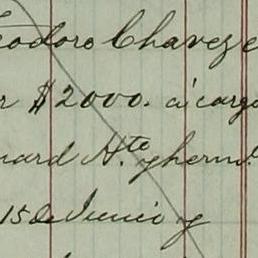 Teodoro Chavez e
r $2000. á cargo
nard Hte y herm.
15 de Junio y